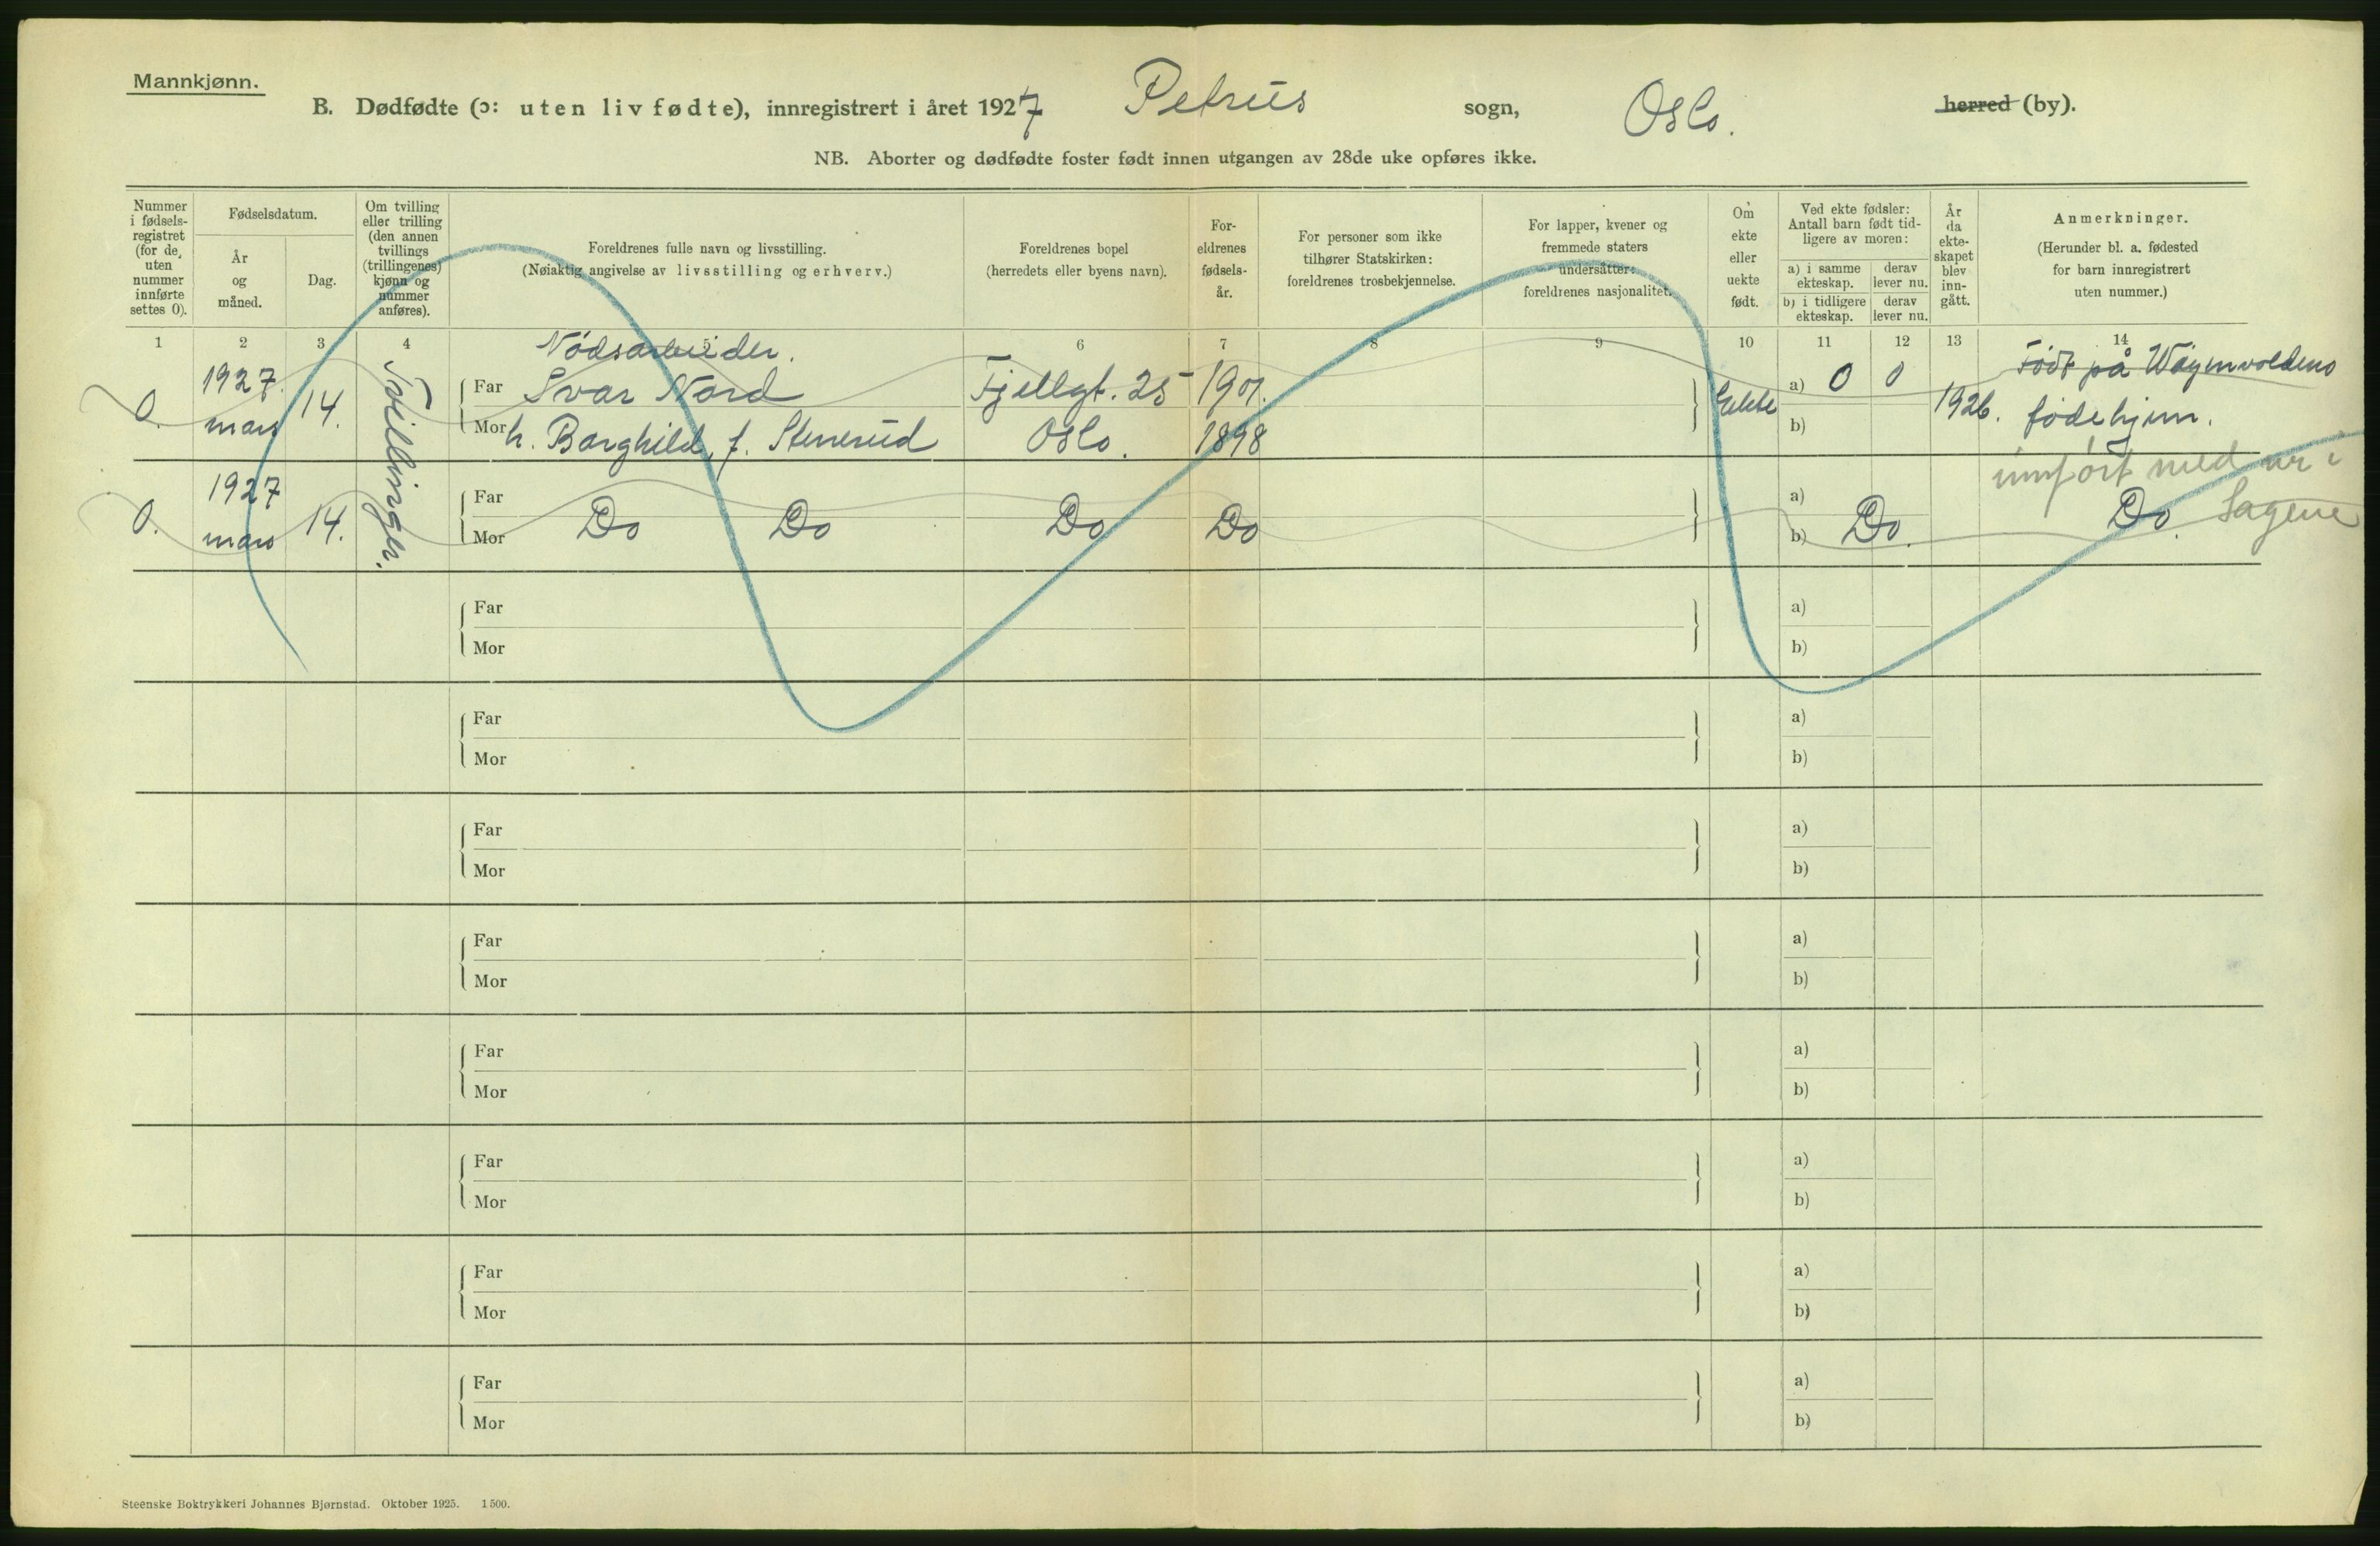 Mannkjønn.
B. Dødfødte (ɔ: uten liv fødte), innregistrert i året 1927 Petrus sogn, Oslo. herred (by).
NB. Aborter og dødfødte foster født innen utgangen av 28de uke opføres ikke.
Nummer
i fødsels-
registret
(for de,
uten
nummer
innførte
settes 0).
Fødselsdatum.
År
og
måned.
Dag.
Om tvilling
eller trilling
(den annen
tvillings
(trillingenes)
kjønn og
nummer
anføres).
Foreldrenes fulle navn og livsstilling.
(Nøiaktig angivelse av livsstilling og erhverv.)
Foreldrenes bopel
(herredets eller byens navn).
For-
eldrenes
fødsels-
år.
For personer som ikke
tilhører Statskirken:
foreldrenes trosbekjennelse.
For lapper, kvener og
fremmede staters
undersåtter:
foreldrenes nasjonalitet.
Om
ekte
eller
uekte
født.
Ved ekte fødsler:
Antall barn født tid-
ligere av moren:
a) i samme
ekteskap.
derav
lever nu.
b) i tidligere
ekteskap.
derav
lever nu.
År
da
ekte-
skapet
blev
inn-
gått.
Anmerkninger.
(Herunder bl. a. fødested
for barn innregistrert
uten nummer.)
1 2 3 4 5 6 7 8 9 10 11 12 13 14
Nödsarbeider.
0. 1927. mars 14. Tvillinger.
Far Ivar Nord Fjellgt. 25 1901. Ekte a) 0 0 1926. Født på Wågenvoldens
Mor h. Borghild, f. Stenerud Oslo. 1898 b) födehjem.
innført med nr i
Sagene
0. 1927 mars 14.
Far a)
Mor Do Do Do Do b) Do. Do.
Far a)
Mor b)
Far a)
Mor b)
Far a)
Mor b)
Far a)
Mor b)
Far a)
Mor b)
Far a)
Mor b)
Far a)
Mor b)
Far a)
Mor b)
Steenske Boktrykkeri Johannes Bjørnstad. Oktober 1925. 1500.